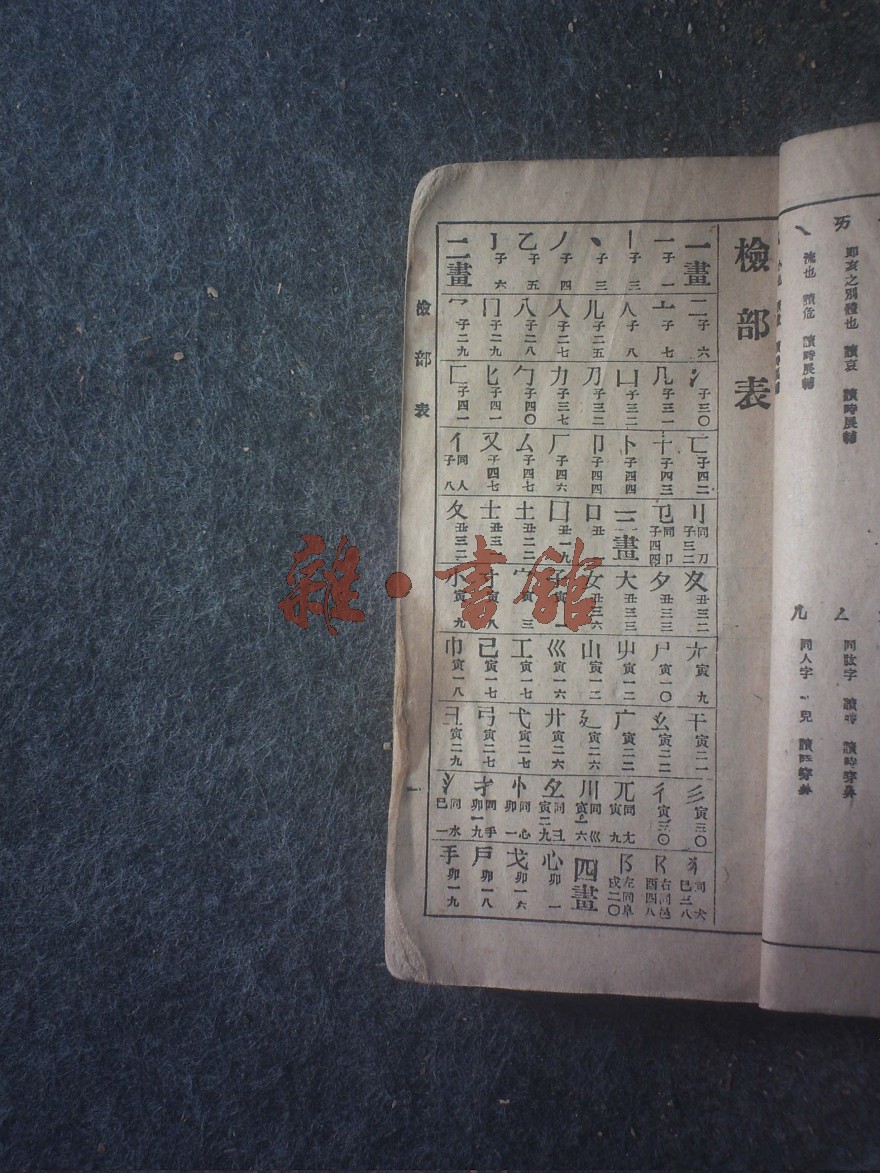 丂 即亥之別體也 讀哀 讀時展輔
乀 流也 讀危 讀時展輔
𠃋 同肱字 讀時穿鼻
𠘨 同人字 讀兒 讀時穿鼻
檢部表
一畫 一 子一 丨 子三 丶 子三 丿 子四 乙 子五 亅 子六 二畫
二 子六 亠 子七 人 子八 儿 子二五 入 子二七 八 子二八 冂 子二九 冖 子二九
冫 子三〇 几 子三一 凵 子三二 刀 子三二 力 子三七 勹 子四〇 匕 子四一 匚 子四一
匸 子四二 十 子四三 卜 子四四 卩 子四四 厂 子四六 厶 子四七 又 子四七 亻 同人 子八
刂 同刀 子三二 㔾 同卩 子四四 三畫 口 丑一 囗 丑一九 土 丑二二 士 丑三一 夂 丑三二
夊 丑三二 夕 丑三三 大 丑三三 女 丑三六 子 寅一 宀 寅三 寸 寅八 小 寅九
尢 寅九 尸 寅一〇 屮 寅一二 山 寅一二 巛 寅一六 工 寅一七 己 寅一七 巾 寅一八
干 寅二一 幺 寅二二 广 寅二二 廴 寅二六 廾 寅二六 弋 寅二七 弓 寅二七 彐 寅二九
彡 寅三〇 彳 寅三〇 兀 同尢 寅九 川 同巛 寅一六 彑 同彐 寅二九 忄 同心 卯一 扌 同手 卯一九 氵 同水 巳一
犭 同犬 巳三八 阝 右同邑 酉四八 阝 左同阜 戌二〇 四畫 心 卯一 戈 卯一六 戶 卯一八 手 卯一九
檢部表
一
雜·書館